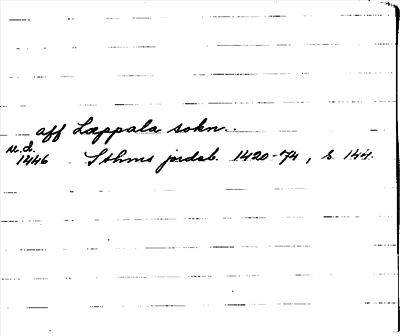 aff Læppala sokn.
u.d.
1446 Sthms jordab. 1420-74, s. 144.